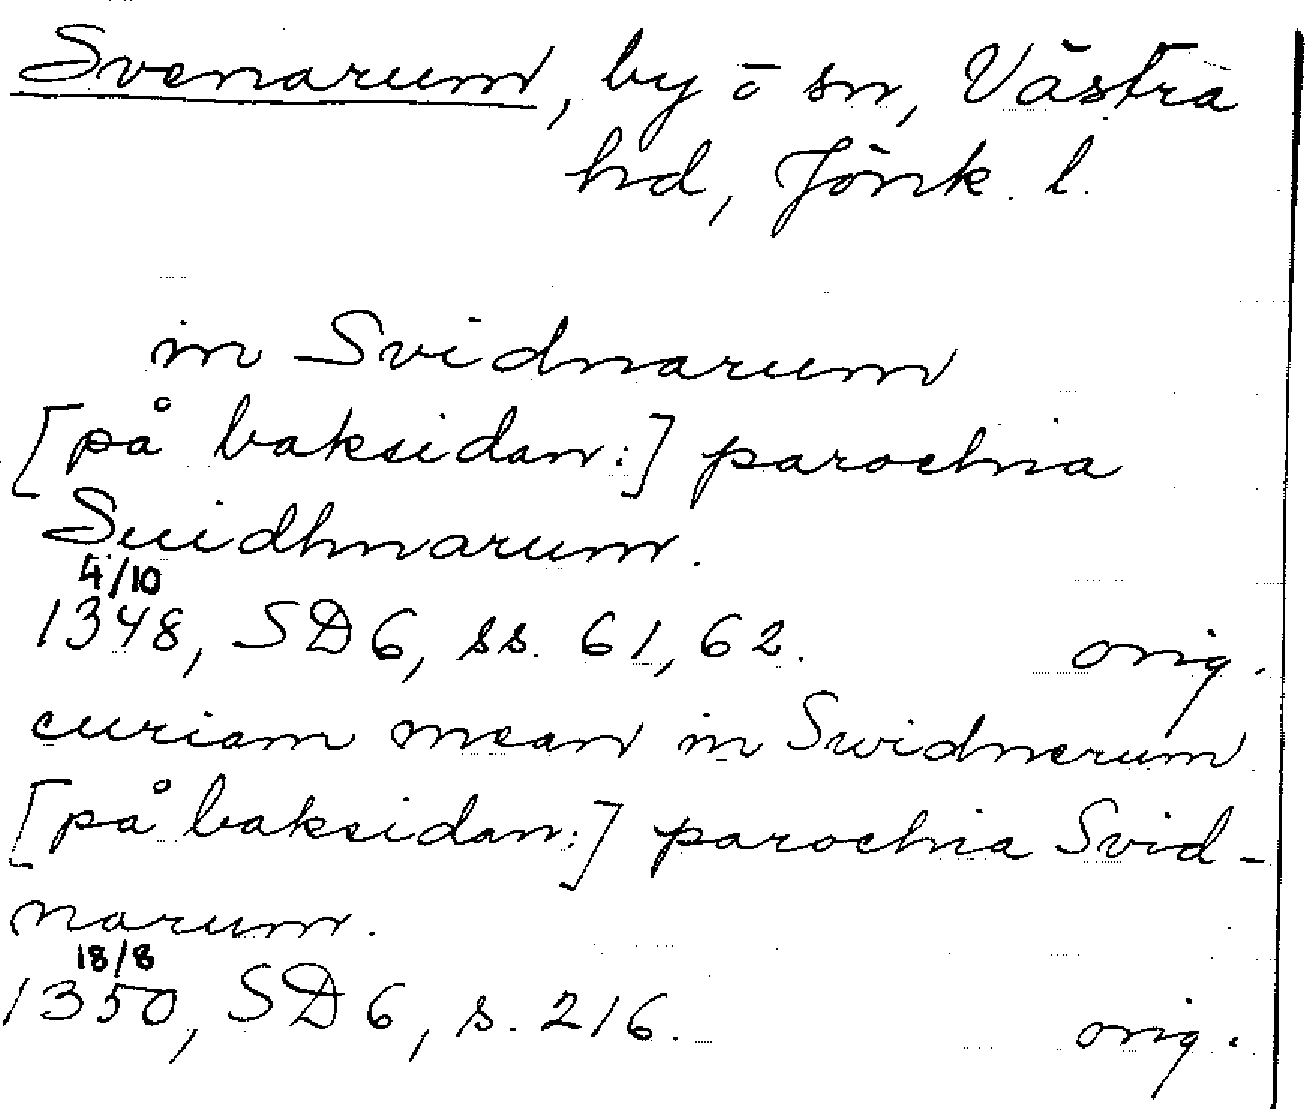 Svenarum, by o sn, Västra
hd, Jönk. l.
in Svidnarum
[på baksidan:] parochia
Suidhnarum.
4/10
1348, SD 6, ss. 61, 62. orig.
curiam mean in Swidnerum
[på baksidan:] parochia Svid-
narum.
18/8
1350, SD 6, s. 216. orig.